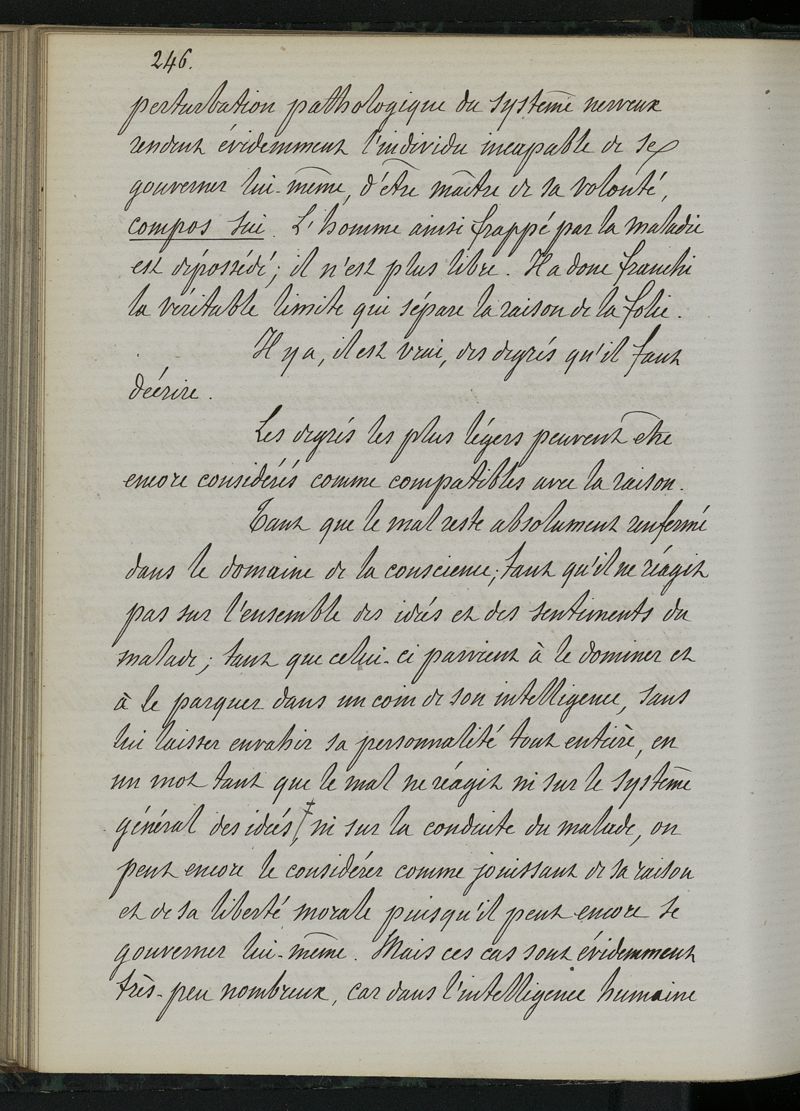 246.
perturbation pathologique du système nerveux
rendent évidemment l'individu incapable de se
gouverner lui-même, d'être maître de sa volonté,
compos sui. L'homme ainsi frappé par la maladie
est dépossédé; il n'est plus libre. Il a donc franchi
la véritable limite qui sépare la raison de la folie.
Il y a, il est vrai, des degrés qu'il faut
décrire.
Les degrés les plus légers peuvent être
encore considérés comme compatibles avec la raison.
Tant que le mal reste absolument renfermé
dans le domaine de la conscience; tant qu'il ne réagit
pas sur l'ensemble des idées et des sentiments du
malade; tant que celui-ci parvient à le dominer et
à le parquer dans un coin de son intelligence, sans
lui laisser envahir sa personnalité tout entière, en
un mot tant que le mal ne réagit ni sur le système
général des idées, ni sur la conduite du malade, on
peut encore le considérer comme jouissant de sa raison
et de sa liberté morale puisqu'il peut encore se
gouverner lui-même. Mais ces cas sont évidemment
très-peu nombreux, car dans l'intelligence humaine